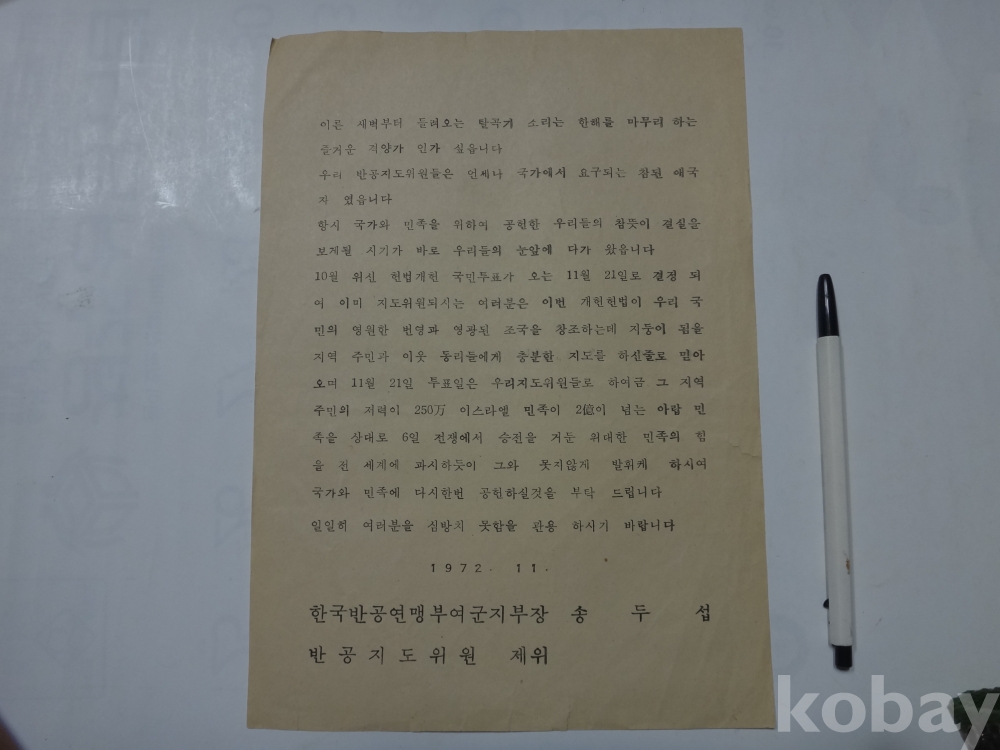 이른 새벽부터 들려오는 탈곡기 소리는 한해를 마무리 하는
즐거운 격양가 인가 싶읍니다
우리 반공지도위원들은 언제나 국가에서 요구되는 참된 애국
자 였읍니다
항시 국가와 민족을 위하여 공헌한 우리들의 참뜻이 결실을
보게될 시기가 바로 우리들의 눈앞에 다가 왔읍니다
10월 유신 헌법개헌 국민투표가 오는 11월 21일로 결정 되
여 이미 지도위원되시는 여러분은 이번 개헌헌법이 우리 국
민의 영원한 번영과 영광된 조국을 창조하는데 지둥이 됨을
지역 주민과 이웃 동리들에게 충분한 지도를 하신줄로 믿아
오며 11월 21일 투표일은 우리지도위원들로 하여금 그 지역
주민의 저력이 250万 이스라엘 민족이 2億이 넘는 아랍 민
족을 상대로 6일 전쟁에서 승전을 거둔 위대한 민족의 힘
을 전 세계에 과시하듯이 그와 못지않게 발휘케 하시여
국가와 민족에 다시한번 공헌하실것을 부탁 드립니다
일일히 여러분을 심방치 못함을 관용 하시기 바랍니다
1972. 11.
한국반공연맹부여군지부장 송 두 섭
반공지도위원 제위
kobay